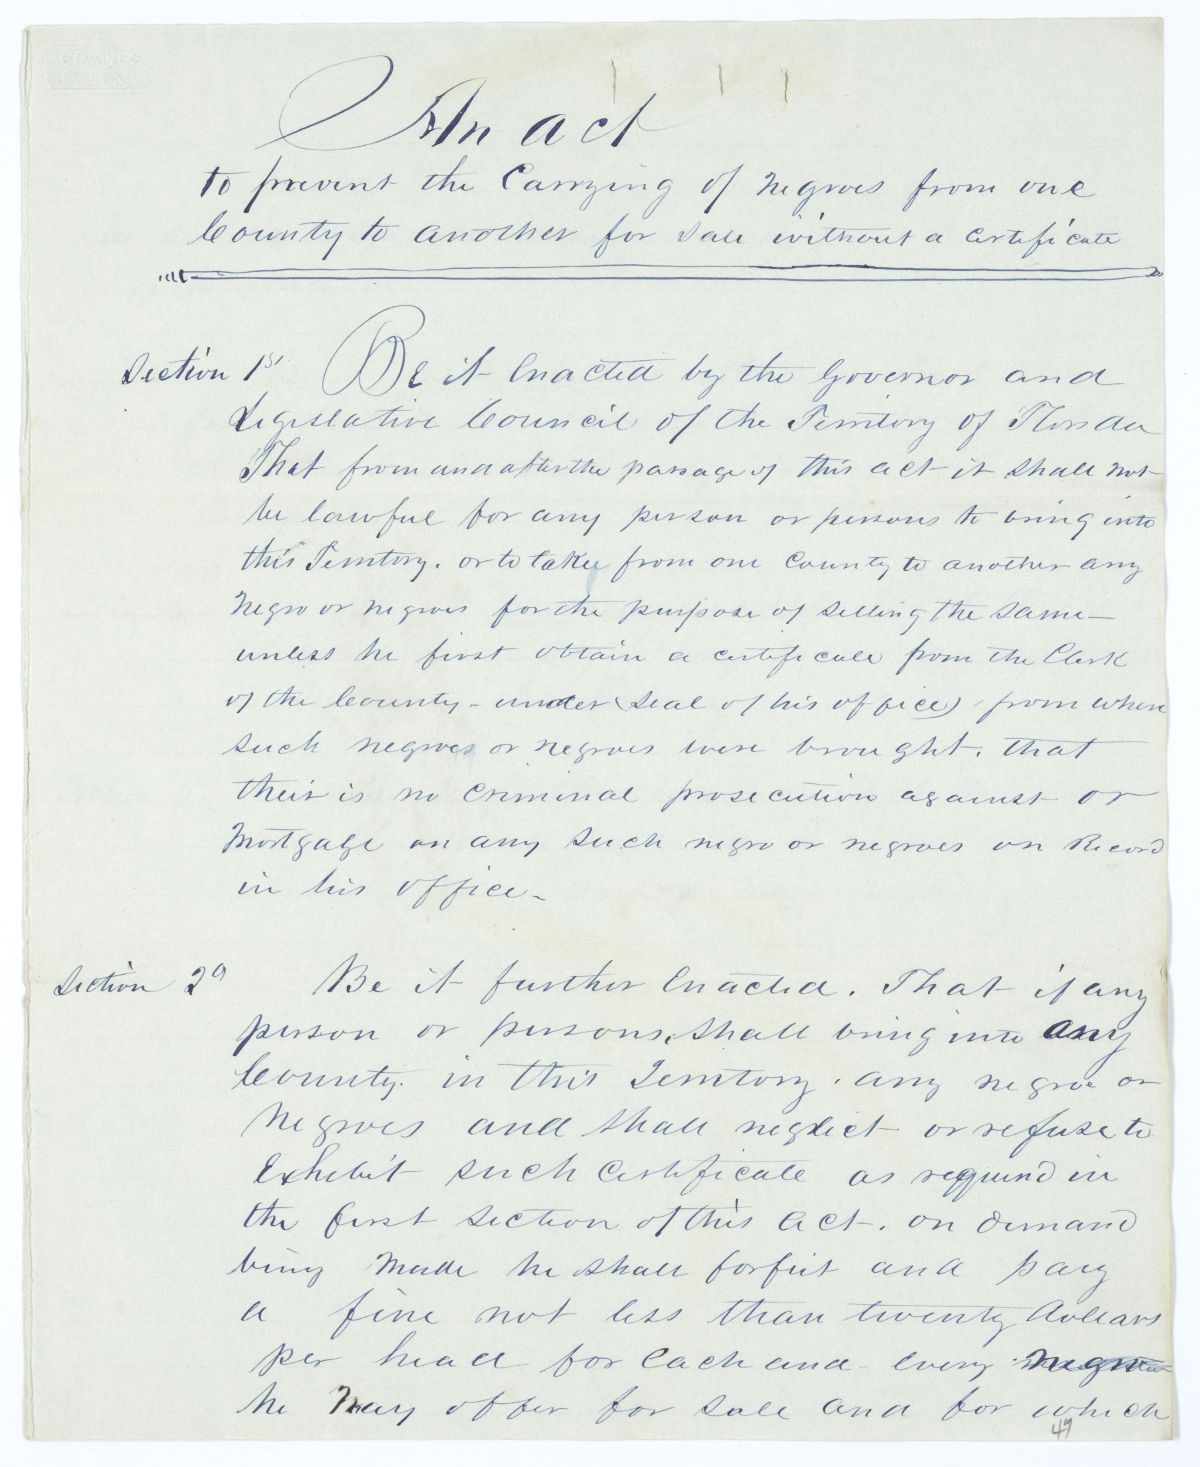 CRANES
An act
to prevent the Carrying of Negroes from one
County to another for sale without a certificate
Section 1st Be it Enacted by the Governor and
Legislative Council of the Territory of Florida
That from and after the passage of this act it shall not
be lawful for any person or persons to bring into
this Territory. or to take from one County to another any
Negro or negroes for the purpose of selling the same—
unless he first obtain a certificate from the Clerk
of the County – under (seal of his office) from where
such negroes or negroes were brought. that
their is no criminal prosecution against or
Mortgage on any such negro or negroes on Record
in his office –
Section 2d Be it further Enacted. That if any
person or persons, shall bring into any
County. in this Territory. any negroe or
Negroes and shall neglect or refuse to
Exhibit such Certificate as required in
the first section of this act. on demand
being made he shall forfeit and pay
a fine not less than twenty dollars
per head for Each and every
he may offer for sale and for which
47